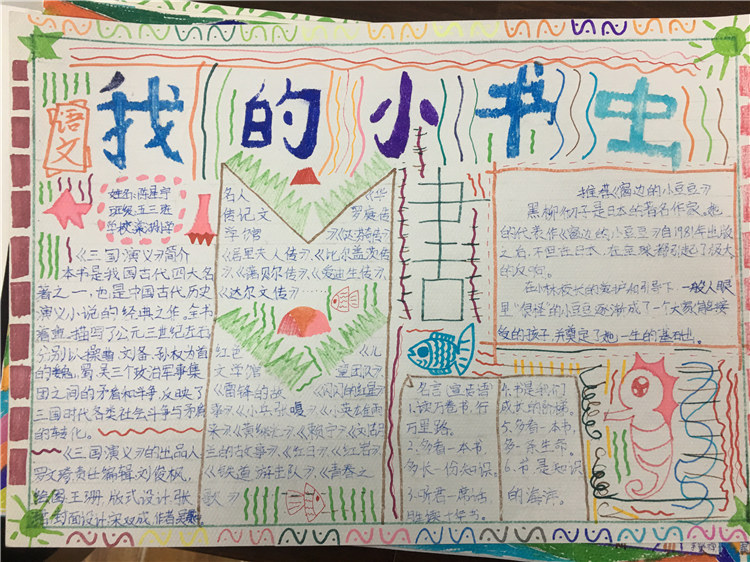 我的小书虫
语文
《三国演义》简介
本书是我国古代四大名
著之一,也是中国古代历史
演义小说的经典之作。全书
描写了公元三世纪左右
刘备、孙权为首
的魏、蜀、吴三个政治军事集
团之间的矛盾和斗争,反映了
三国时代各类社会斗争与矛盾
的转化。
《三国演义》的出品人
责任编辑 刘俊枫
绘图 王珊 版式设计 张
封面设计 宋双成
名人
传记文
学馆
《居里夫人传》
《比尔盖茨传》
《诺贝尔传》
《爱迪生传》
《达尔文传》
红色
文学馆
《儿
童团队》
《雷锋的故
事》
《闪闪的红星》
《小兵张嘎》
《小英雄雨
来》
的故事》
《红日》
《红岩》
《铁道游击队》
《青春之
歌》
书
推荐《窗边的小豆豆》
黑柳彻子是日本的著名作家,她
的代表作《窗边的小豆豆》自1981年出版
之后,不但在日本,在全球都引起了极大
的反响。
在小林校长的爱护和引导下,一般人眼
里“怪怪”的小豆豆逐渐成了一个大家能接
的孩子,并奠定了她一生的基础。
名言宣传语
1.读万卷书,行
万里路。
2.多看一本书,
多长一份知识。
3.听君一席话
胜读十年书。
4.书是我们
成长的阶梯。
5.多看一本书,
6.书是知识
的海洋。